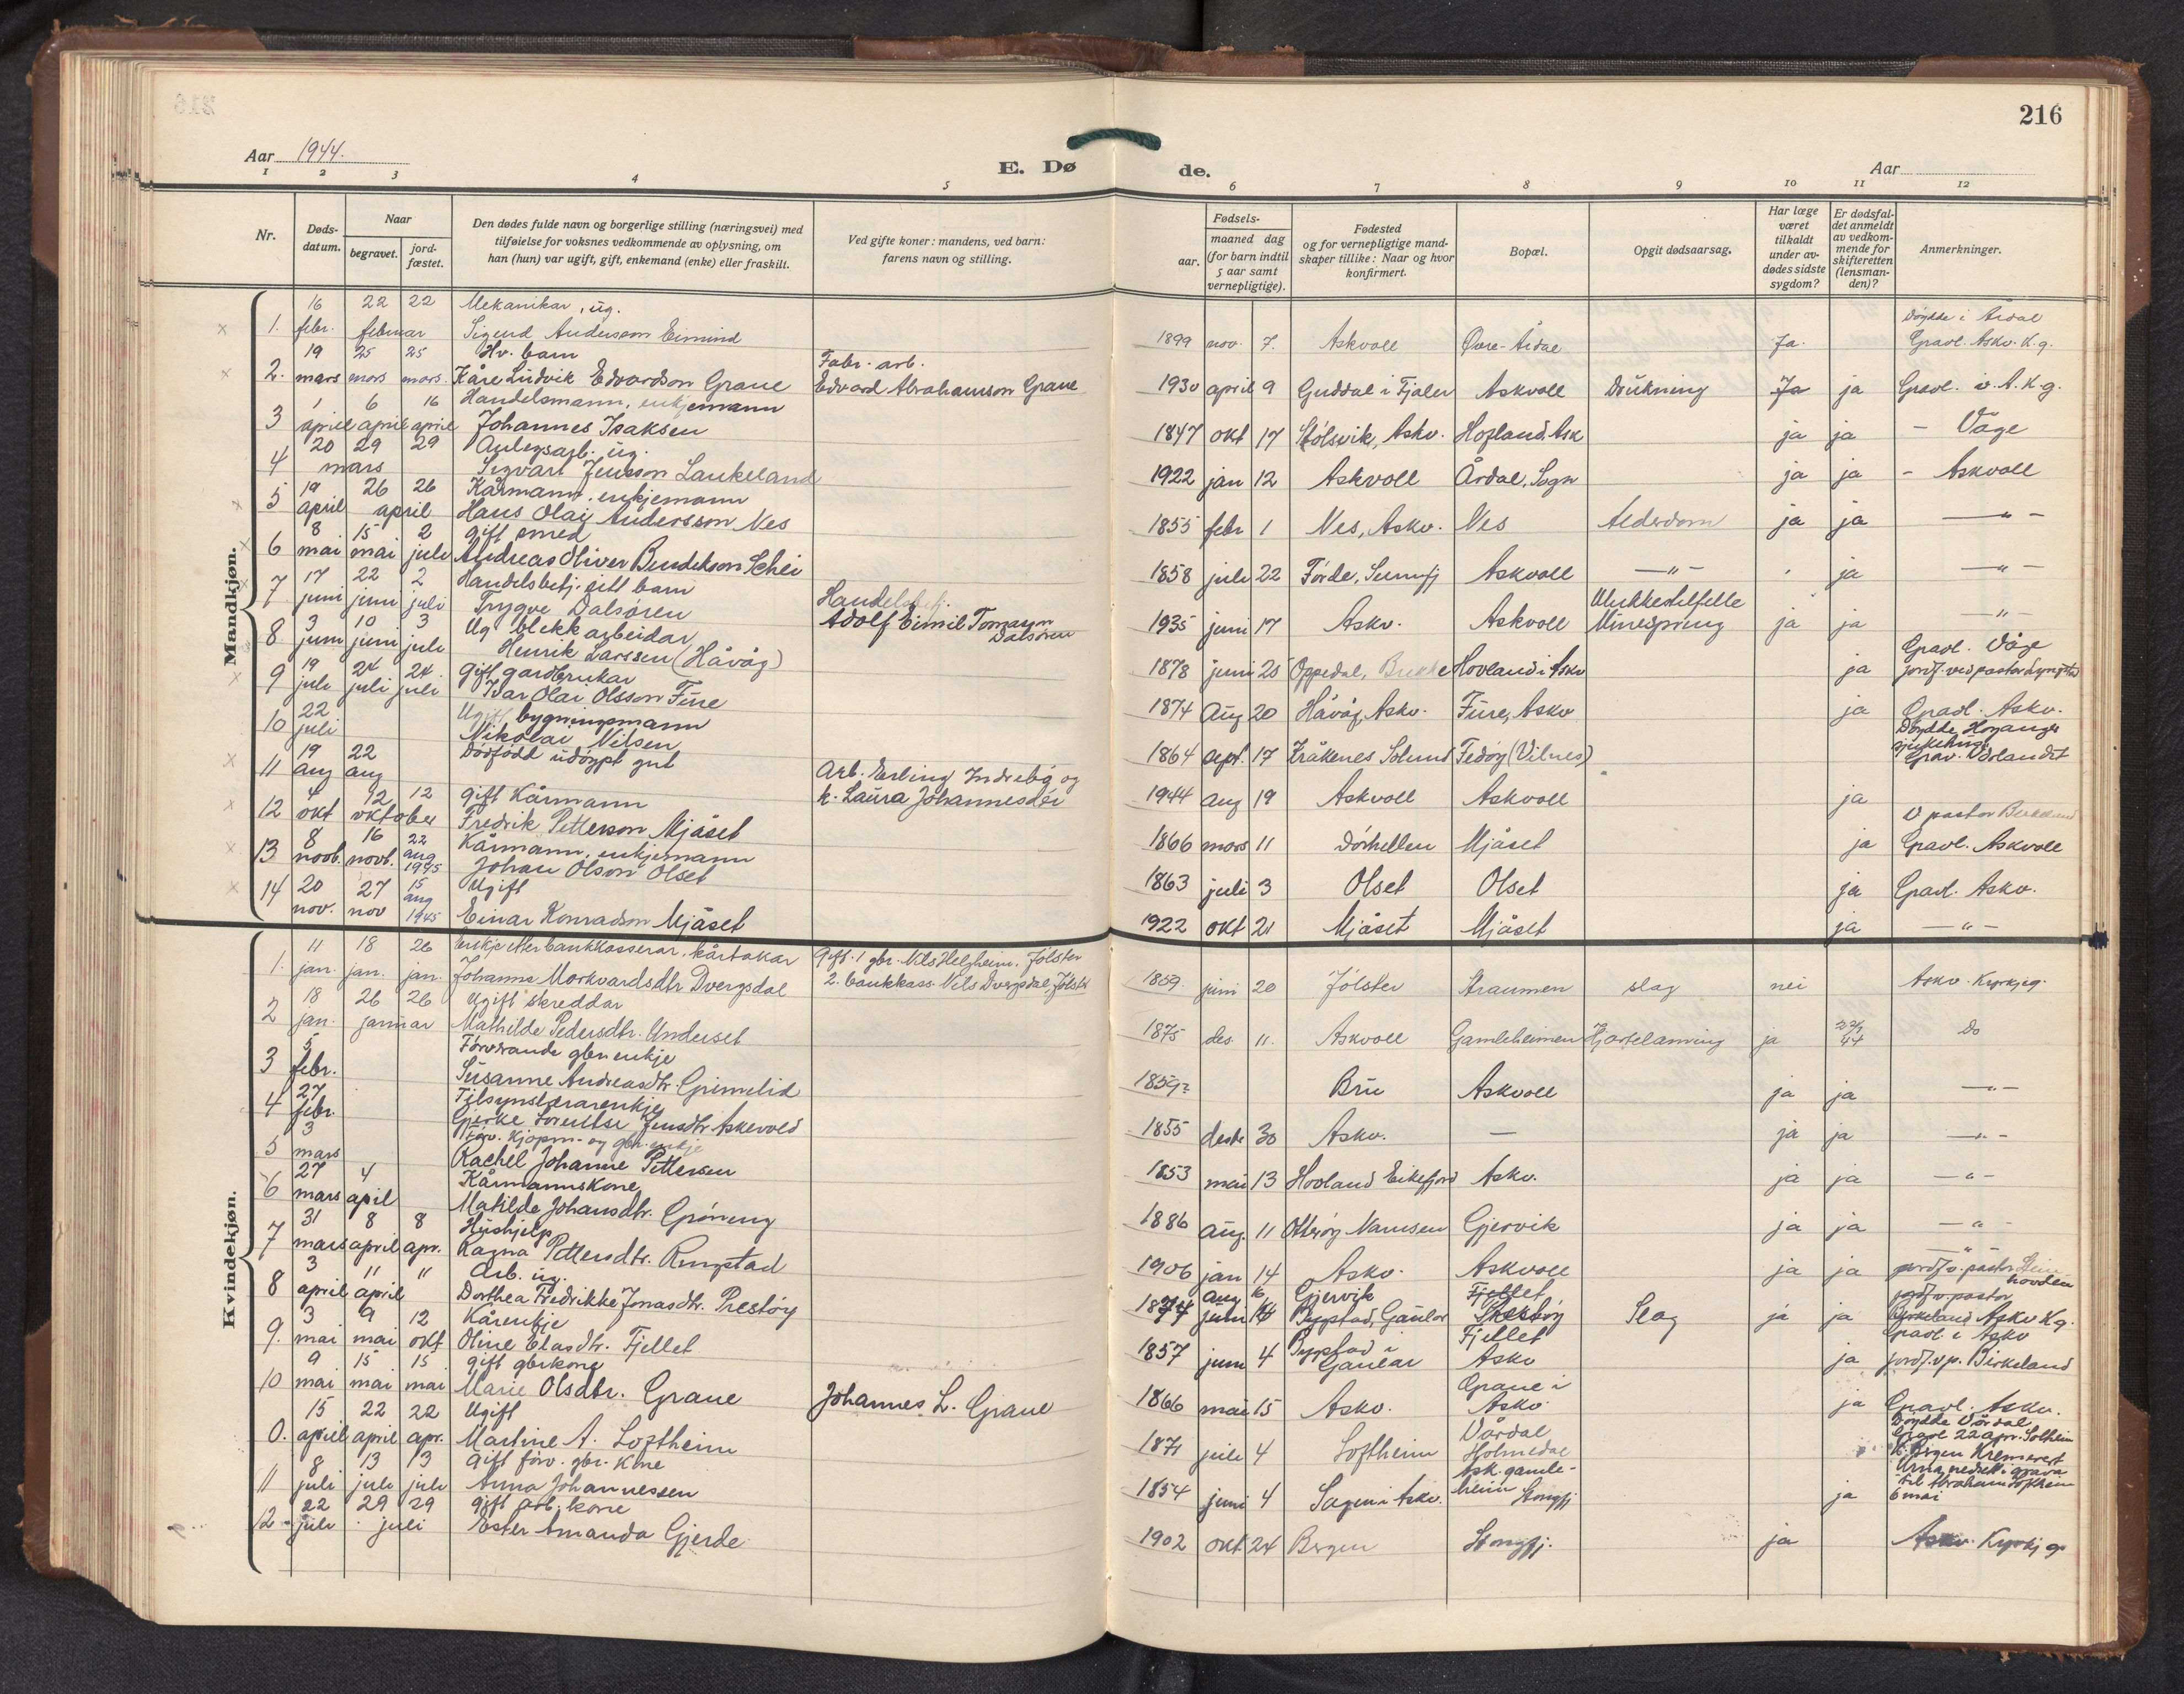 216
Aar 1944.
E. Dø de.
Aar
1 2 3 4 5 6 7 8 9 10 11 12
Nr.
Døds-
datum.
Naar
begravet.
jord-
fæstet.
Den dødes fulde navn og borgerlige stilling (næringsvei) med
tilføielse for voksnes vedkommende av oplysning, om
han (hun) var ugift, gift, enkemand (enke) eller fraskilt.
Ved gifte koner: mandens, ved barn:
farens navn og stilling.
Fødsels-
aar.
maaned dag
(for barn indtil
5 aar samt
vernepligtige).
Fødested
og for vernepligtige mand-
skaper tillike: Naar og hvor
konfirmert.
Bopæl.
Opgit dødsaarsag.
Har læge
været
tilkaldt
under av-
dødes sidste
sygdom?
Er dødsfal-
det anmeldt
av vedkom-
mende for
skifteretten
(lensman-
den)?
Anmerkninger.
Mandkjøn.
16 22 22 Mekanikar, ug. Døydde i Årdal
1. febr. februar Sigurd Anderson Eimind 1899 nov. 7. Askvoll Øvre-Årdal Ja. Gravl. Askv. K.g.
19 25 25 Hv. barn Fabr. arb.
2. mars mars mars. Kåre Ludvik Edvardson Grane Edvard Abrahamson Grane 1930 april 9 Guddal i Fjaler Askvoll Drukning Ja ja Gravl. i A. K.g.
1 6 16 Handelsmann, enkjemann
3 april april april Johannes Isaksen 1847 okt 17 Stølsvik, Askv. Hofland, Ask ja ja - Våge
20 29 29 Anlegsarb. ug.
4 mars Sigvart Jensson Laukeland 1922 jan 12 Askvoll Årdal, Sogn ja ja - Askvoll
19 26 26 Kårmann, enkjemann
5 april april Hans Olai Andersson Nes 1855 febr 1 Nes, Askv. Nes Alderdom ja ja —"—
8 15 2 gift smed
6 mai mai juli Andreas Oliver Bendikson Schei 1858 juli 22 Førde, Sunnfj Askvoll —"— ja —"—
17 22 2 Handelsbetj. eitt barn Handelsbetj. Ulukkestilfelle
7 juni juni juli Trygve Dalsøren Adolf Eimil Tomasson Dalsøren 1935 juni 17 Askv. Askvoll Minespreng ja ja —"—
3 10 3 Ug blekkarbeidar Gravl. Våge
8 juni juni juli Henrik Larssen (Håvåg) 1878 juni 25 Oppedal, Brekke Hovland i Askv ja jordf. ved pastor
19 24 24 Gift gardbrukar
9 juli juli juli Ivar Olai Olsson Fure 1874 Aug 20 Håvåg, Askv. Fure, Askv ja Gravl. Askv.
22 Ugift bygningsmann Døydde Høyanger
10 juli Nikolai Nilsen 1864 sept. 17 Kråkenes Solund Fedøy (Vilnes) sjukehus Grav. Værlandet
19 22 Dødfødd udøypt gut Arb. Erling Indrebø og
11 aug aug k. Laura Johannesdtr 1944 aug 19 Askvoll Askvoll ja
4 12 12 gift Kårmann v pastor Birkeland
12 okt oktober Fredrik Petterson Mjåset 1866 mars 11 Dørhellen Mjåset ja Gravl. Askvoll
8 16 22 Kårmann, enkjemann
13 novb. novb. aug 1945 Johan Olson Olset 1863 juli 3 Olset Olset ja Gravl. Askv.
20 27 15 Ugift
14 nov. nov aug 1945 Einar Konradson Mjåset 1922 okt 21 Mjåset Mjåset ja —"—
Kvindekjøn.
11 18 26 Enkje etter bankkasserar, kårtakar Gift. 1 gbr. Nils Helgheim, Jølster
1. jan. jan. jan. Johanne Morkvardsdtr Dvergsdal 2. bankkass. Nils Dvergsdal, Jølst 1859. juni 20 Jølster Straumen slag nei Askv. Kyrkjeg.
18 26 26 Ugift skreddar
2 jan. januar Mathilde Pedersdtr. Underset 1875 des. 11. Askvoll Gamleheimen Hjartelamning ja 44 Do
5 Forverande gbr enkje
3 febr. Susanne Andreasdtr. Grimelid 1859? Bru Askvoll ja ja —"—
27 Tilsynslærarenkje
4 febr. Gjerke Lorentse Jensdtr Askevold 1855 desbr 30 Askv. — ja ja —"—
3 Forv. kjøpm.- og gbr. enkje
5 mars Rachel Johanne Pettersen 1853 mai 13 Hovland Eikefjord Askv. ja ja —"—
27 4 Kårmannskone
6 mars april Matilde Johansdtr. Grøneng 1886 aug. 11 Otterøy Namsen Gjervik ja ja —"—
31 8 8 Hushjelp —"—
7 mars april apr. Ragna Pettersdtr. Rungstad 1906 jan 14 Askv. Askvoll ja ja jordf. v. pastor
3 11 11 Arb. ug. aug 6 Gjervik Fjellet jordf. v. pastor
8 april april Dorthea Fredrikke Jonasdtr. Prestøy 1874 juni 14 Bygstad, Gaular Prestøy Slag ja ja Birkeland Askv Kg.
3 9 12 Kårenkje Fjellet Gravl. i Askv
9. mai mai okt Oline Elasdtr. Fjellet 1857 juni 4 Bygstad i Gaular Askv ja jordf. v p. Birkeland
9 15 15 gift gbrkone Grane i
10 mai mai mai Marie Olsdtr. Grane Johannes L. Grane 1866 mai 15 Askv. Askv. ja Gravl. Askv.
15 22 22 Ugift Vårdal Døydde Vårdal
0. april april apr. Martine A. Loftheim 1871 juli 4 Loftheim Holmedal Gravl 22 apr. Solheim K. Bergen Kremert
8 13 13 Gift forv. gbr. kone Ask. gamle- Urna nedsett i grava
11 juli juli juli Anna Johannessen 1854 juni 4 Sagen i Askv. heim Stongfj ja til Abraham Loftheim 6 mai
22 29 29 gift arb. kone
12 juli juli Ester Amanda Gjerde 1902 okt 24 Bergen Stongfj. ja Askv. Kyrkj g.